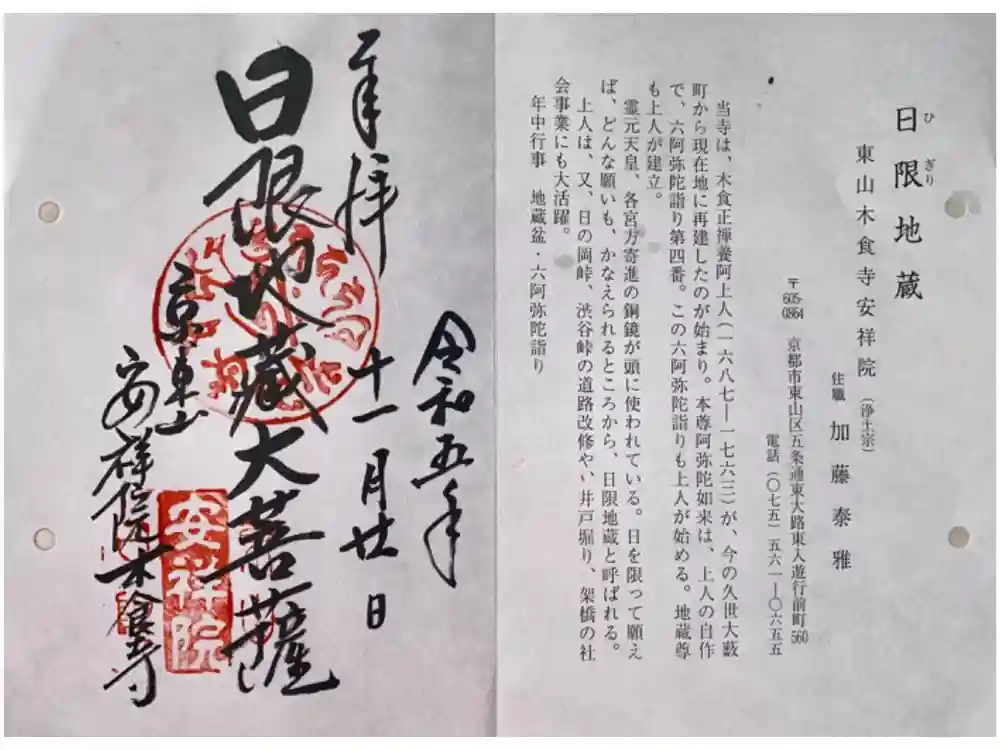 日限地蔵
ひぎり
東山木食寺安祥院（浄土宗）
住職　加藤泰雅
〒605-0864　京都市東山区五条通東大路東入遊行前町560
電話（〇七五）五六一―〇六五五
当寺は、木食正禅養阿上人（一六八七―一七六三）が、今の久世大藪
町から現在地に再建したのが始まり。本尊阿弥陀如来は、上人の自作
で、六阿弥陀詣り第四番。この六阿弥陀詣りも上人が始める。地蔵尊
も上人が建立。
霊元天皇、各宮方寄進の銅鏡が頭に使われている。日を限って願え
ば、どんな願いも、かなえられるところから、日限地蔵と呼ばれる。
上人は、又、日の岡峠、渋谷峠の道路改修や、井戸堀り、架橋の社
会事業にも大活躍。
年中行事　地蔵盆・六阿弥陀詣り
令和五年
十一月廿日
奉拝
日限地蔵大菩薩
京東山
安祥院木食寺
安祥院